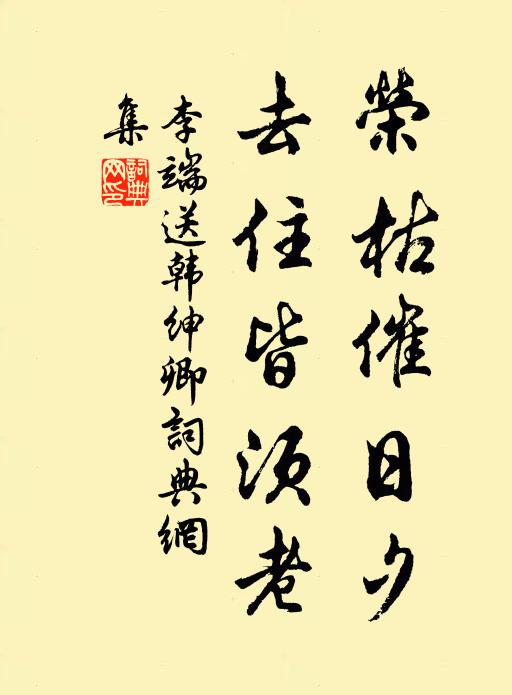 榮枯催日夕
去住皆須老
李端送韓紳卿詞典網
集
詞典網印